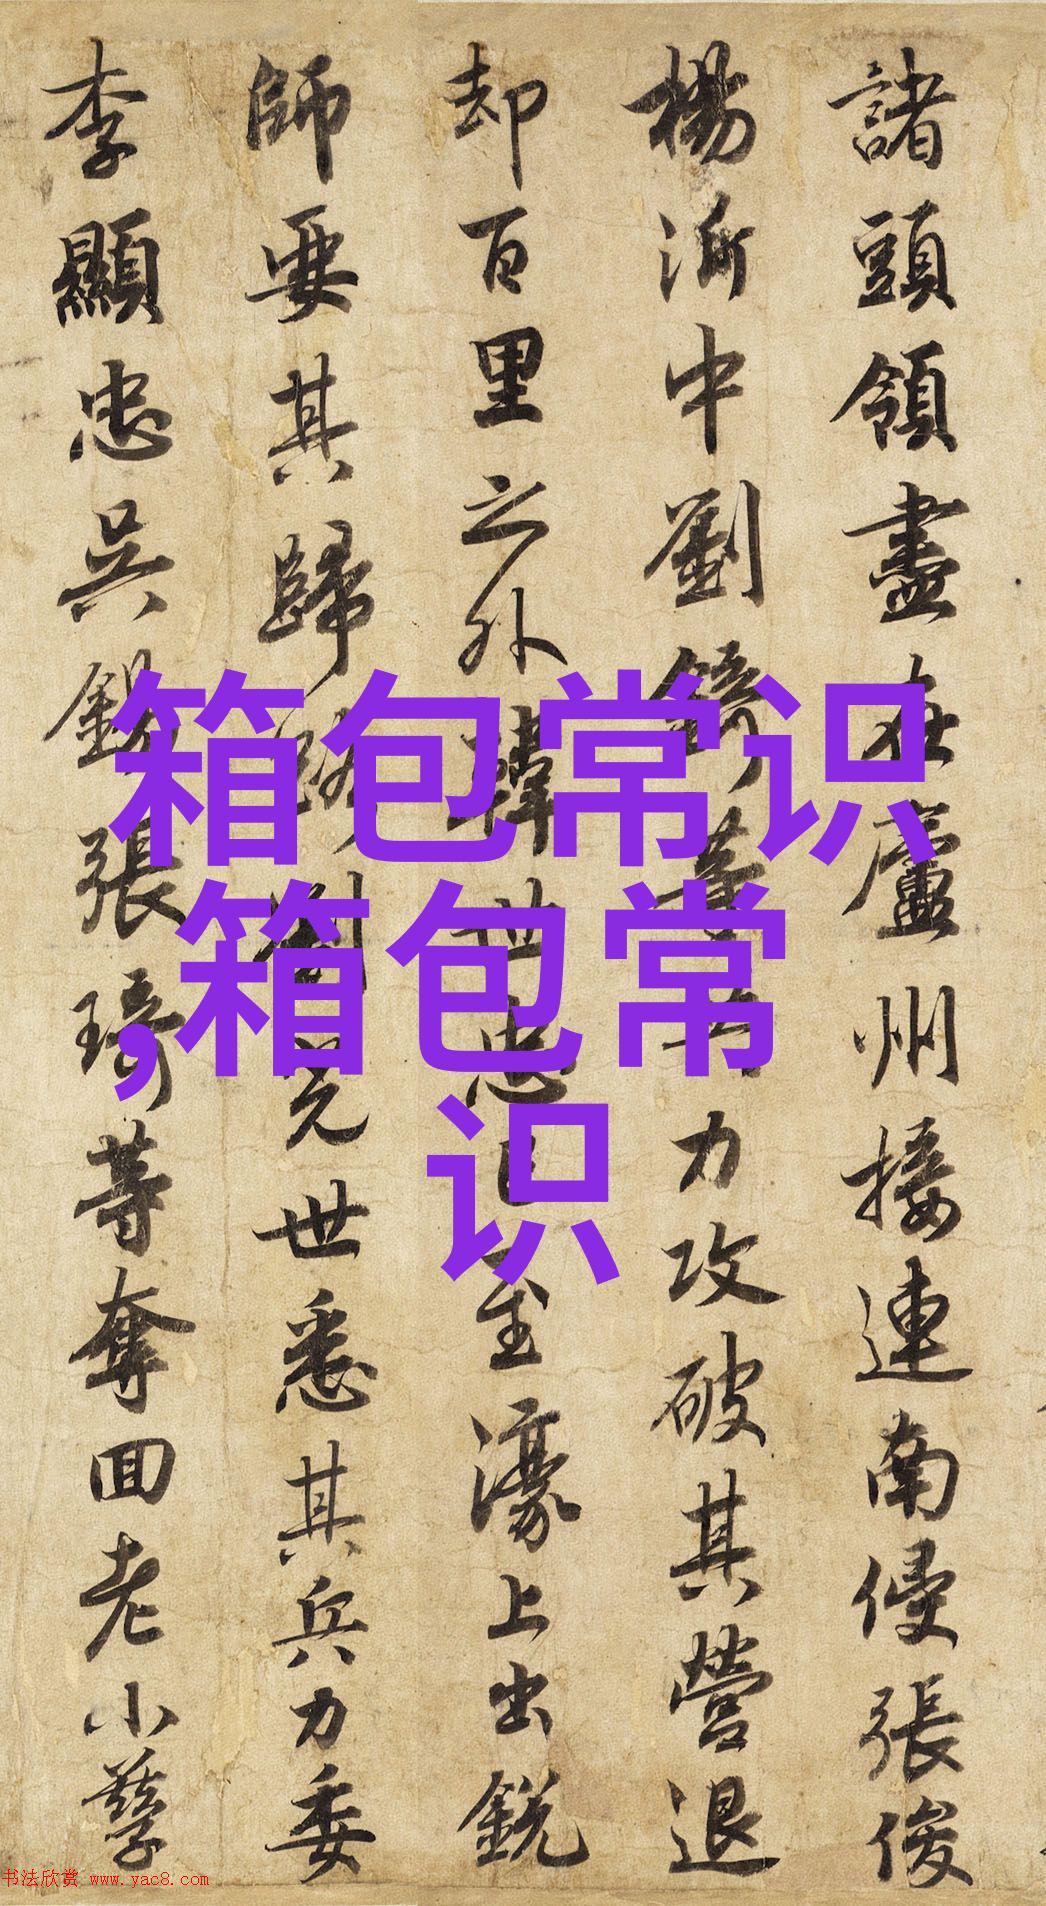 諸頭領盡在廬州接連南侵張俊
楊沂中劉錡等力攻破其營退
却百里之外韓世忠已至濠上出銳
師要其歸路劉光世悉其兵力委
李顯忠吳錫張琦等奪回老小孳
箱包常识
,箱包常
识
书法欣赏 www.yac8.com